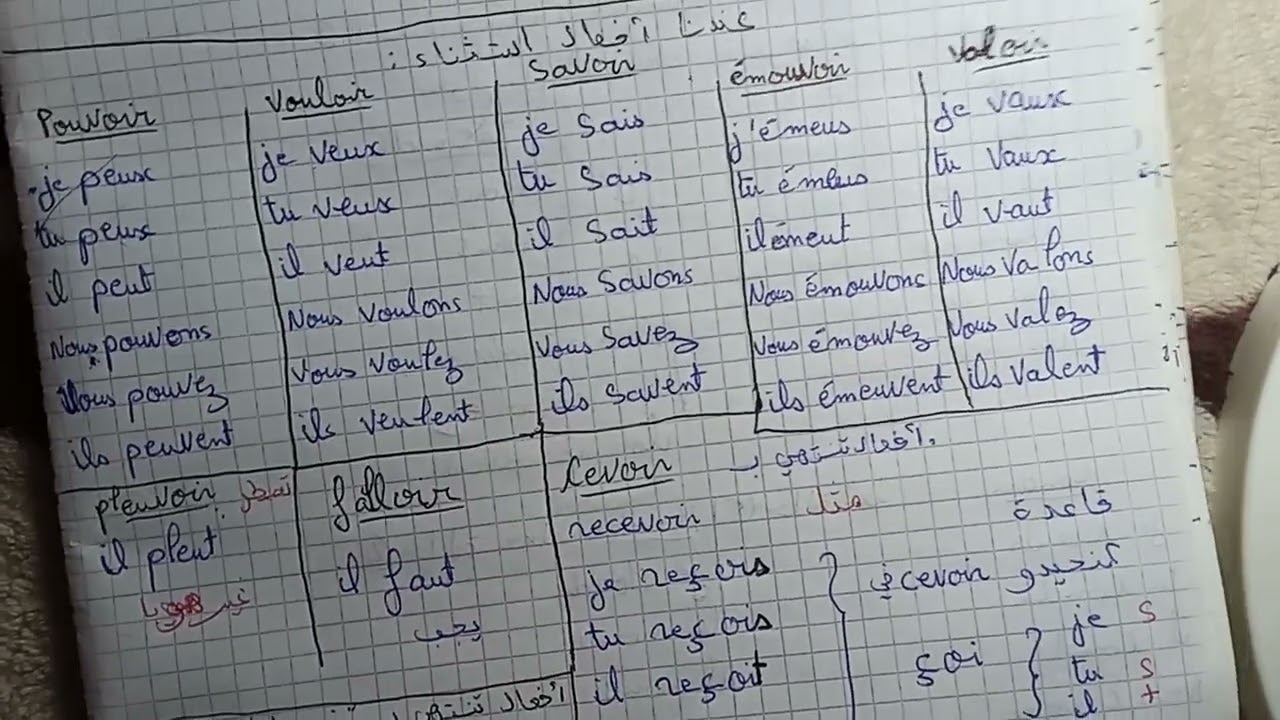 عندنا أفعال استثناء :
Pouvoir
je peux
tu peux
il peut
Nous pouvons
Vous pouvez
ils peuvent
Vouloir
je veux
tu veux
il veut
Nous voulons
Vous voulez
ils veulent
Savoir
je sais
tu sais
il sait
Nous savons
Vous savez
ils savent
émouvoir
j'émeus
tu émeus
il émeut
Nous émouvons
Vous émouvez
ils émeuvent
Valoir
je vaux
tu vaux
il vaut
Nous valons
Vous valez
ils valent
pleuvoir تمطر
il pleut
falloir
il faut
يجب
Cevoir أفعال تنتهي ب
recevoir مثل
je reçois
tu reçois
il reçoit
قاعدة
كنحيدو cevoir في
çoi
je s
tu s
il t
أفعال تنتهي